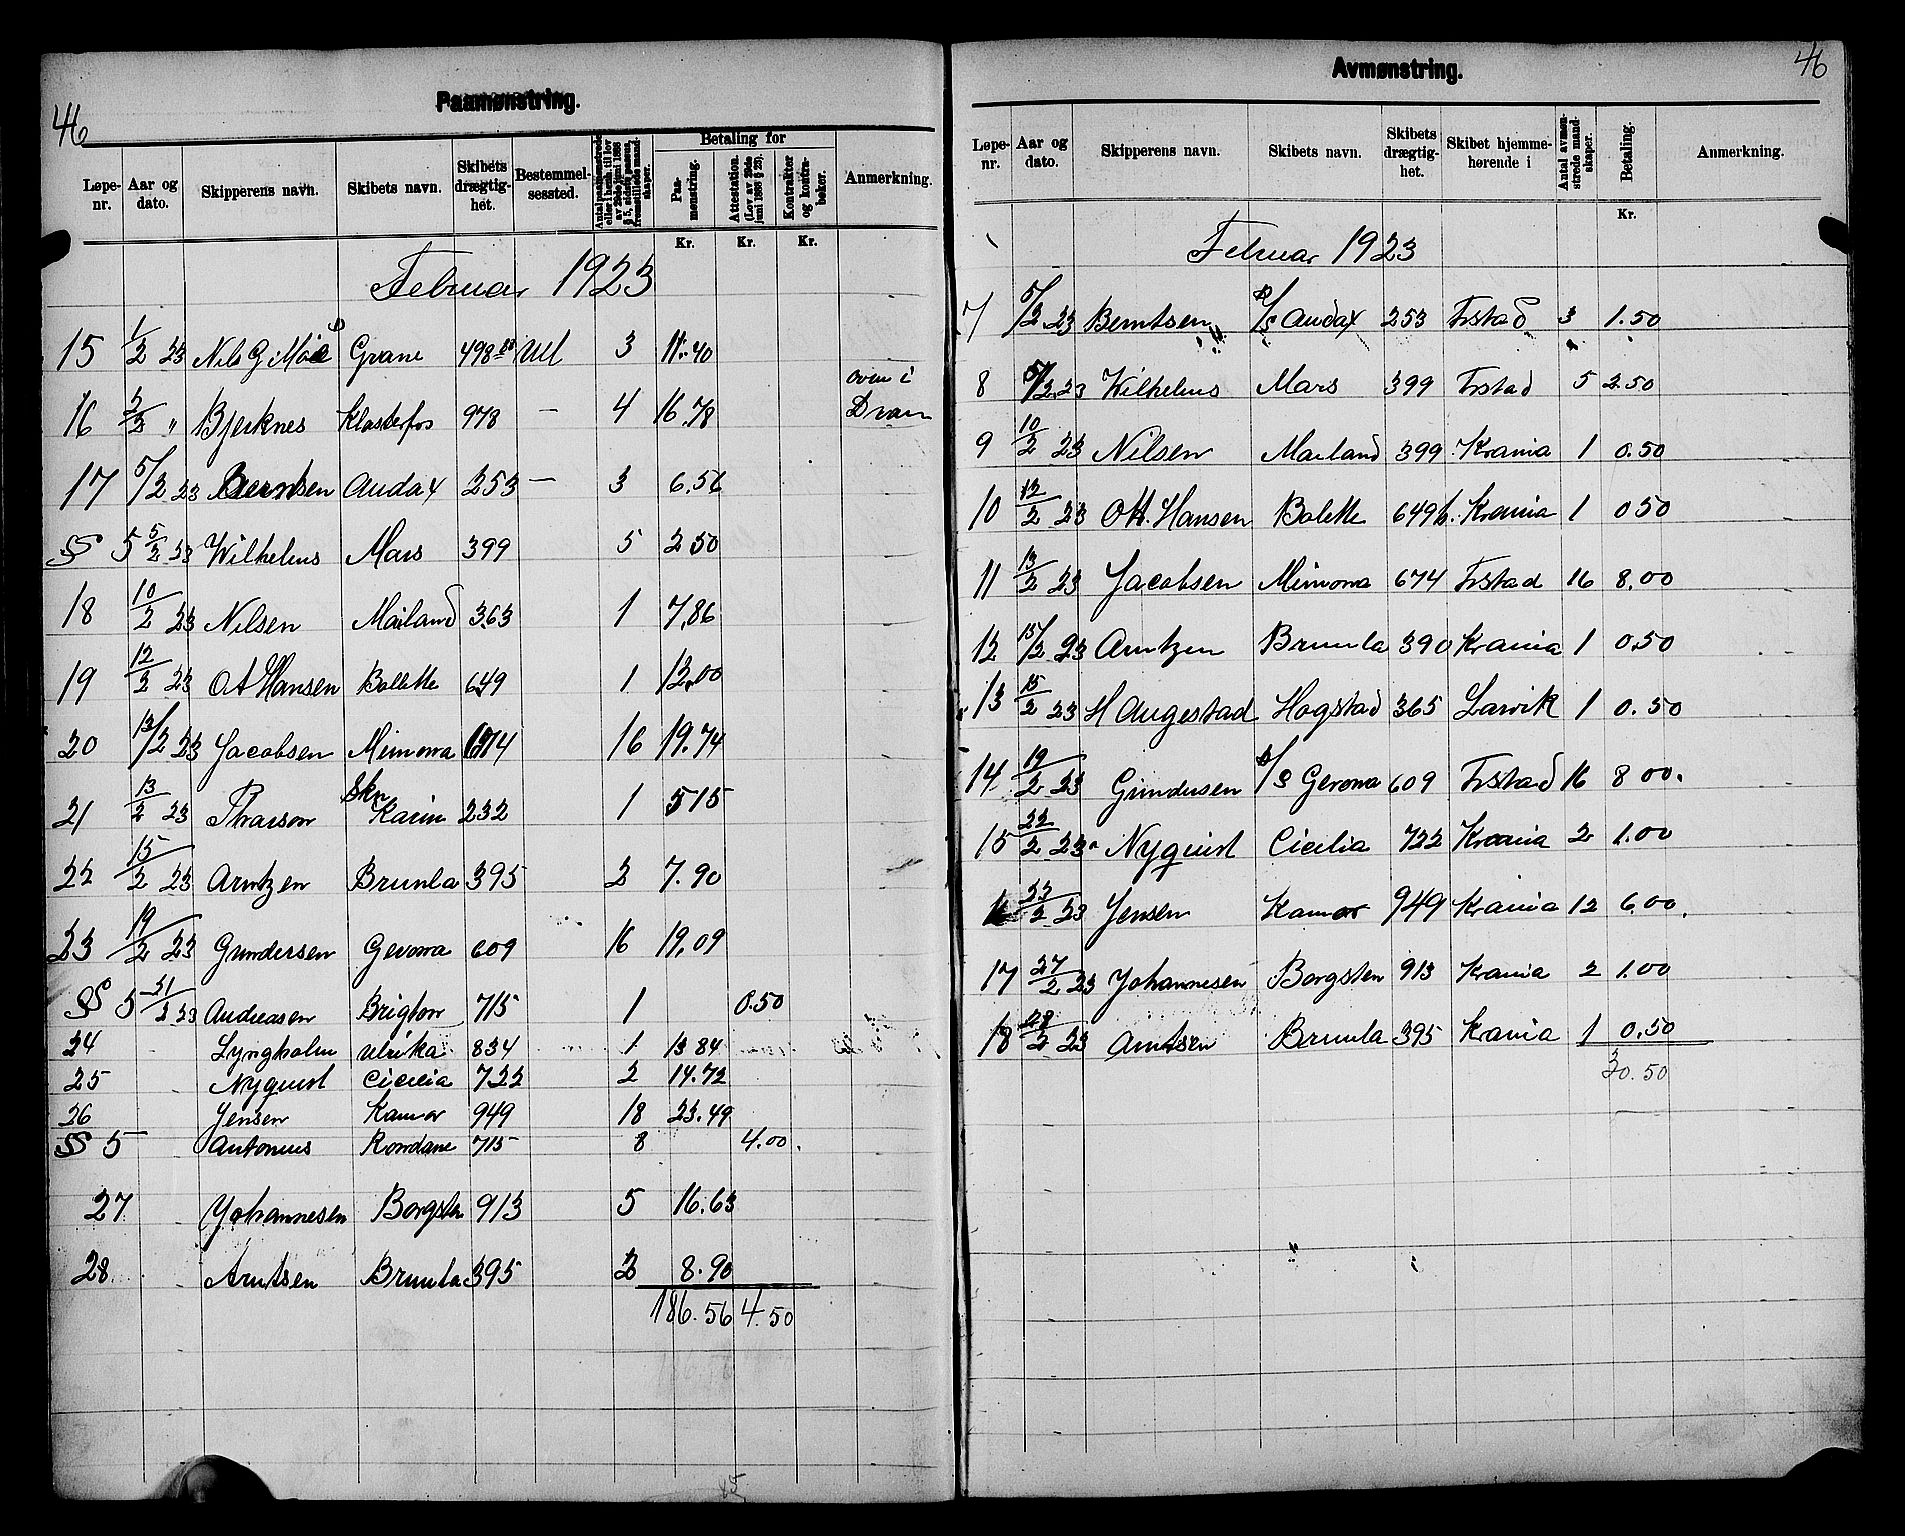 46
Paamønstring.
Løpe-nr. Aar og dato. Skipperens navn. Skibets navn. Skibets drægtig-het. Bestemmel-sessted. Antal paamønstrede eller i henh. til lov av 29de juni 1888 § 5, sidste passus, fremstillede mand-skaper. Betaling for Paa-mønstring. Attestation. (Lov av 29de juni 1888 § 23). Kontrakter og kontra-bøker. Anmerkning.
Kr. Kr. Kr.
Februar 1923
15 1/2 23 Nils G Møe Grane 498 Utl 3 11.40
16 2/2 " Bjerknes Klosterfos 978 — 4 16.78 oven i Dram
17 5/2 23 Berntsen Audax 253 — 3 6.56
§§ 5 5/2 23 Wilhelms Mars 399 5 2 50
18 10/2 23 Nilsen Mailand 363 1 7,86
19 12/2 23 Ott Hansen Bolette 649 1 12,00
20 13/2 23 Jacobsen Mimona 674 16 19.74
21 13/2 23 Tharson Skn Karin 232 1 5 15
22 15/2 23 Arntzen Brunla 395 2 7.90
23 19/2 23 Gundersen Gerona 609 16 19,09
§§ 5 21/2 23 Andreasen Brigton 715 1 0.50
24 Lyngholm Ulrika 834 1 13 84
25 Nyquist Cicilia 722 2 14.72
26 Jensen Kamor 949 18 23.49
§§ 5 Antonius Rondane 715 8 4.00
27 Johannesen Borgsten 913 5 16.63
28 Arntsen Brunla 395 2 8.90
186.56 4.50
85
46
Avmønstring.
Løpe-nr. Aar og dato. Skipperens navn. Skibets navn. Skibets drægtig-het. Skibet hjemme-hørende i Antal avmøn-strede mand-skaper. Betaling. Anmerkning.
Kr.
Februar 1923
7 5/2 23 Berntsen D/S Audax 253 Frstad 3 1.50
8 5/2 23 Wilhelms Mars 399 Frstad 5 2.50
9 10/2 23 Nilsen Mailand 399 Krania 1 0.50
10 12/2 23 Ott. Hansen Bolette 649 Krania 1 0 50
11 13/2 23 Jacobsen Mimona 674 Frstad 16 8.00
12 15/2 23 Arntzen Brunla 390 Krania 1 0.50
13 15/2 23 H Augestad Hogstad 365 Larvik 1 0.50
14 19/2 23 Gundersen D/S Gerona 609 Frstad 16 8 00.
15 22/2 23 Nyquist Cicilia 722 Krania 2 1.00
16 22/2 23 Jensen Kamor 949 Krania 12 6.00
17 27/2 23 Johannesen Borgsten 913 Krania 2 1.00
18 28/2 23 Arntsen Brunla 395 Krania 1 0.50
30.50